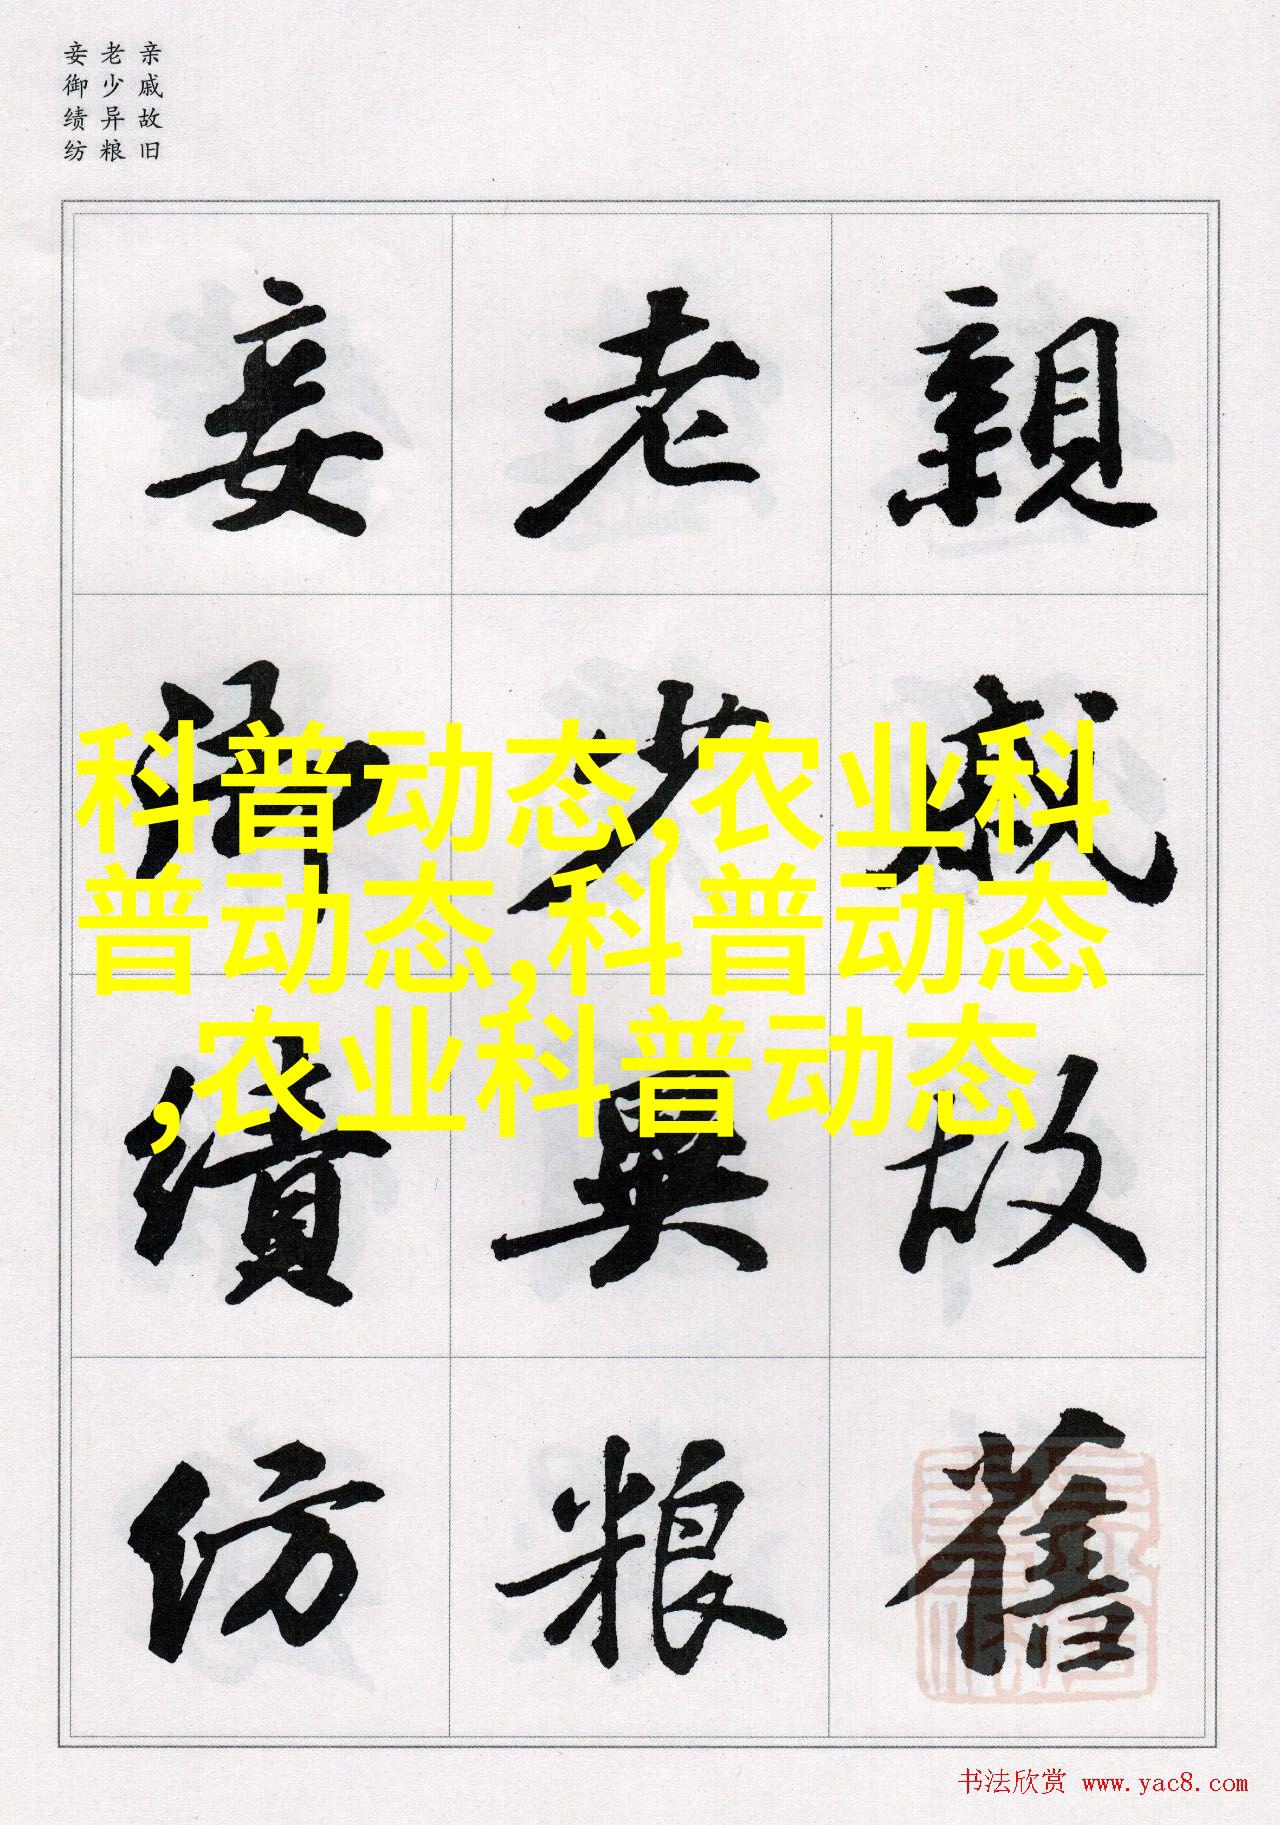 亲戚故旧
老少异粮
妾御绩纺
親戚故舊
老少異粮
妾御績紡
科普动态,农业科
普动态,科普动态
,农业科普动态
书法欣赏 www.yac8.com